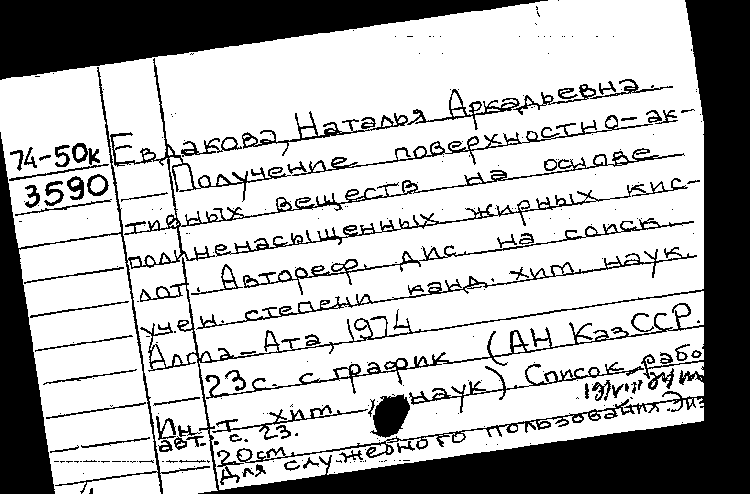 74-50к
3590
Евдакова, Наталья Аркадьевна.
Получение поверхностно-ак-
тивных веществ на основе
полиненасыщенных жирных кис-
лот. Автореф. дис. на соиск.
учен. степени канд. хим. наук.
Алма-Ата, 1974.
23 с. с график (АН КазССР.
Ин-т хим. наук). Список рабо
авт.: с. 23.
20 см.
Для служебного пользования Экз